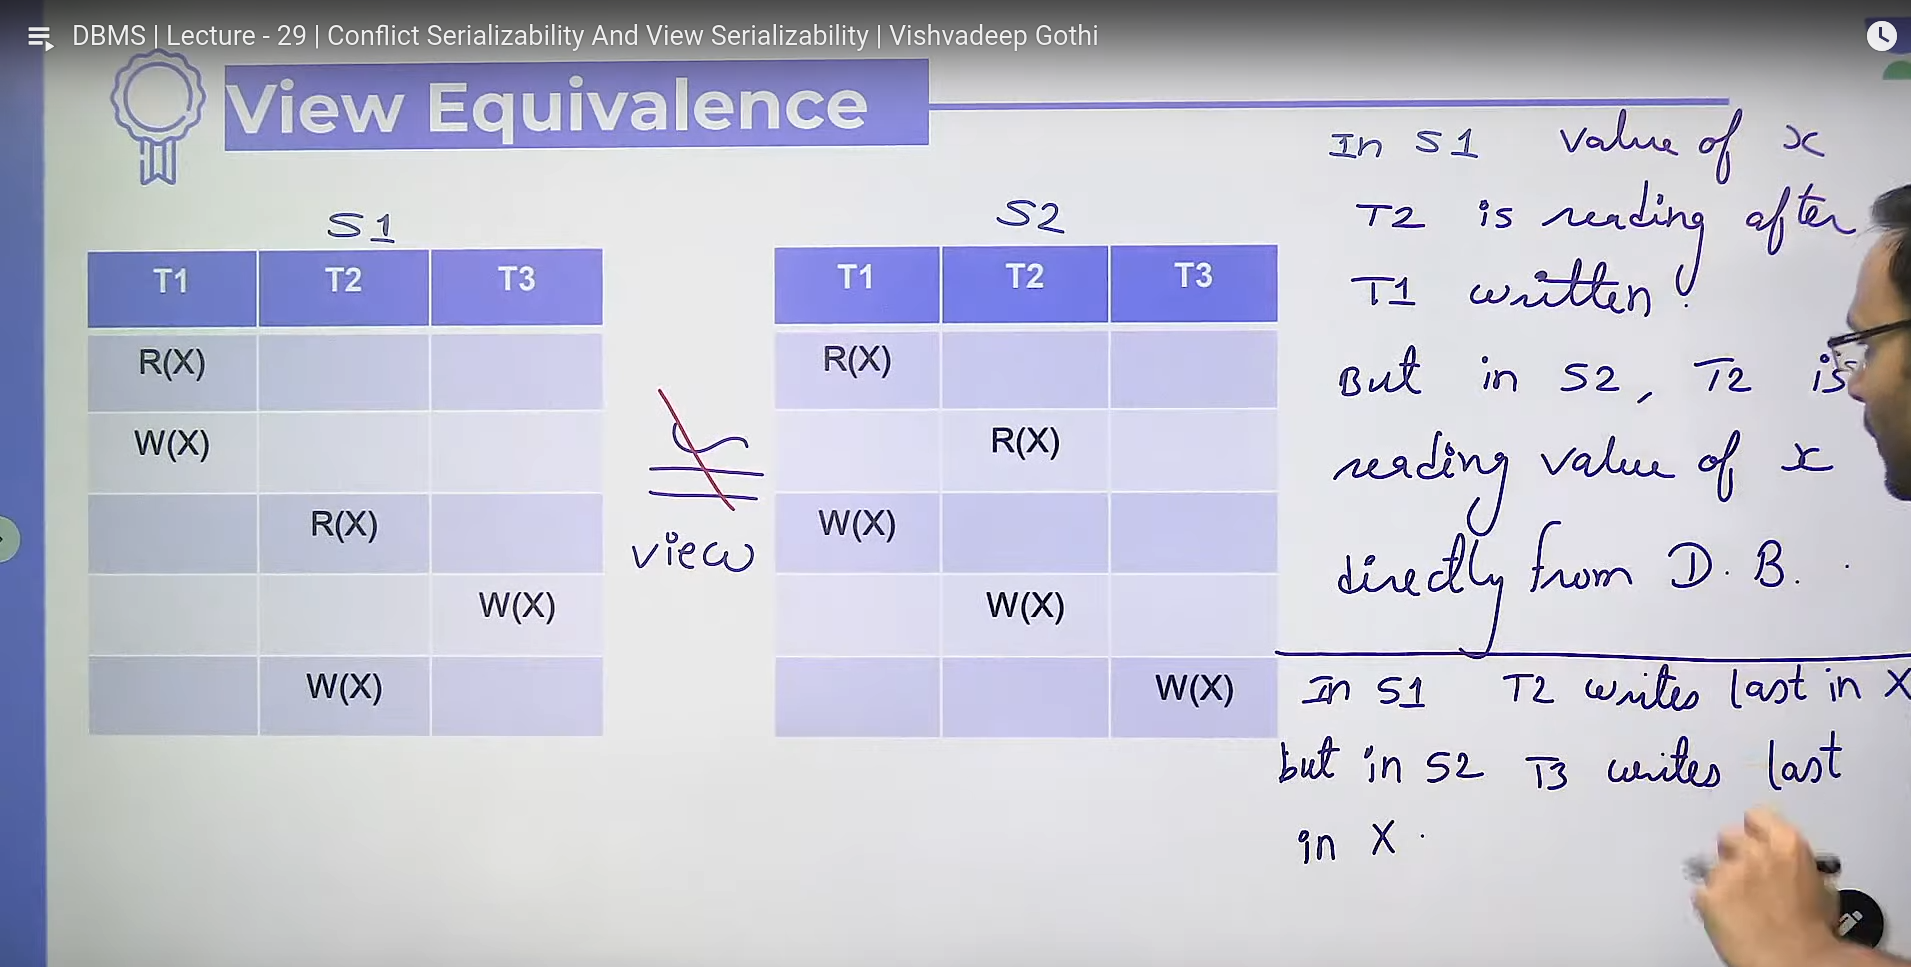 DBMS | Lecture - 29 | Conflict Serializability And View Serializability | Vishvadeep Gothi
View Equivalence
S1
T1 T2 T3
R(X)
W(X)
R(X)
W(X)
W(X)
≅
view
S2
T1 T2 T3
R(X)
R(X)
W(X)
W(X)
W(X)
In S1 value of x
T2 is reading after
T1 written.
But in S2, T2 is
reading value of x
directly from D.B.
In S1 T2 writes last in X
but in S2 T3 writes last
in X.